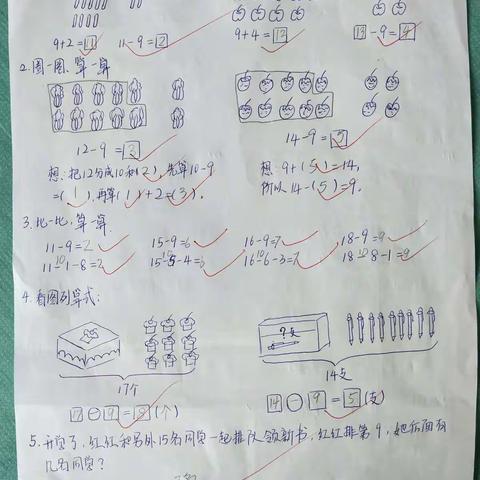 9+2=11 11-9=2 9+4=13 13-9=4
2.圈一圈、算一算
12-9=3 14-9=5
想:把12分成10和(2),先算10-9 想:9+(5)=14,
=(1),再算(1)+2=(3). 所以14-(5)=9.
3.比一比,算一算.
11-9=2 15-9=6 16-9=7 18-9=9
11-1-8=2 15-5-4=6 16-6-3=7 18-8-1=9
4.看图列算式:
?支
17个 14支
17-9=8(个) 14-9=5(支)
5.开学了,红红和另外15名同学一起排队领新书,红红排第9,她后面有
几名同学?